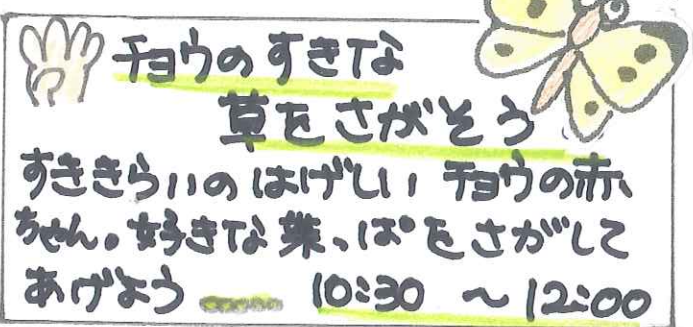 チョウのすきな
草をさがそう
すききらいのはげしい チョウの赤
ちゃん。好きな葉っぱをさがして
あげよう 10:30 ~ 12:00